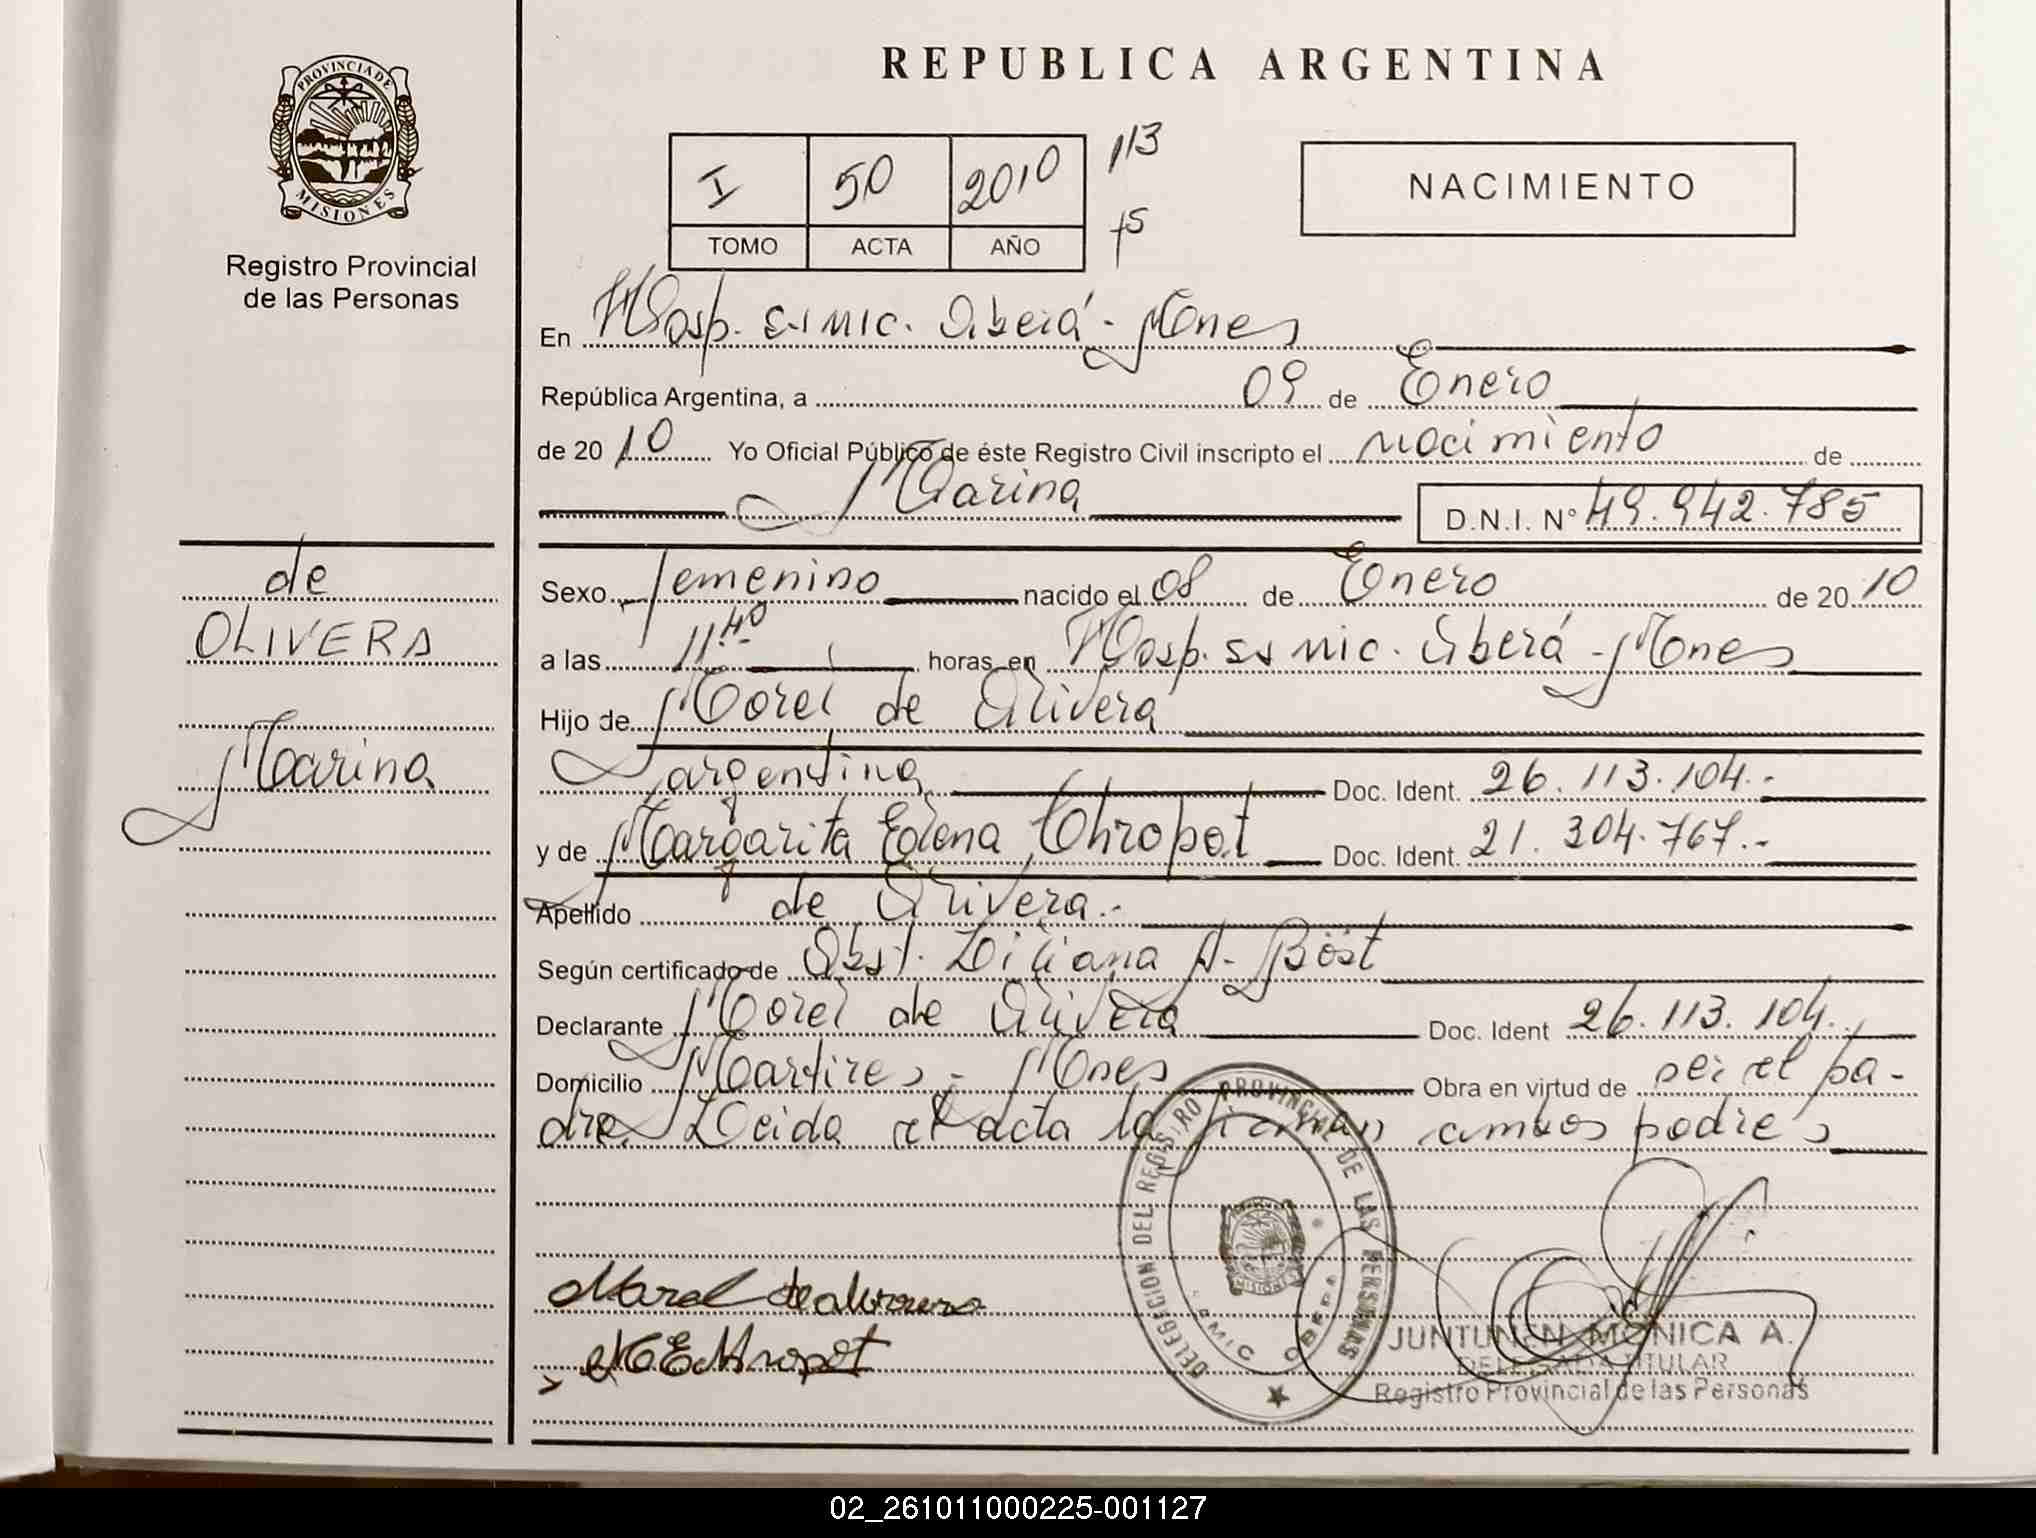 PROVINCIA DE
MISIONES
Registro Provincial
de las Personas
de
OLIVERA
Marina
REPUBLICA ARGENTINA
I 50 2010 113
TOMO ACTA AÑO 75
NACIMIENTO
En Hosp. ss mic. Oberá - Mnes
República Argentina, a 09 de Enero
de 2010 Yo Oficial Público de éste Registro Civil inscripto el nacimiento de
Marina D.N.I. N° 49.942.785
Sexo femenino nacido el 08 de Enero de 2010
a las 11.40 horas en Hosp. ss mic. Oberá - Mnes
Hijo de Morel de Olivera
argentina Doc. Ident. 26.113.104.-
y de Margarita Elena Chropot Doc. Ident. 21.304.767.-
Apellido de Olivera.-
Según certificado de Obst. Liliana A. Böst
Declarante Morel de Olivera Doc. Ident 26.113.104.
Domicilio Martires - Mnes Obra en virtud de ser el pa-
dre. Leida el acta la firman ambos padres
DELEGACION DEL REGISTRO PROVINCIAL DE LAS PERSONAS
SAMIC OBERA
MISIONES
Marel de oliveira
M E Chropot
JUNTUNEN MONICA A.
DELEGADA TITULAR
Registro Provincial de las Personas
02_261011000225-001127